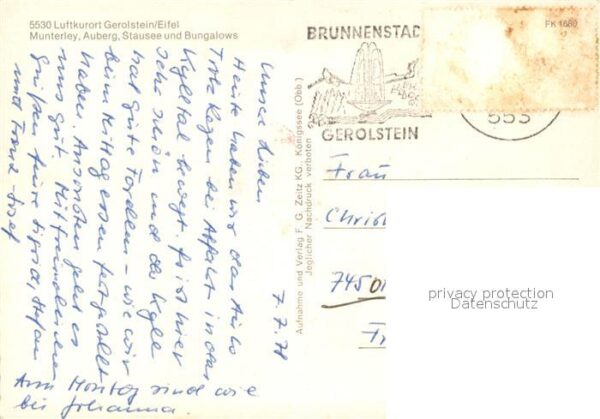 5530 Luftkurort Gerolstein/Eifel
Munterley, Auberg, Stausee und Bungalows
FK 1680
BRUNNENSTAD
GEROLSTEIN
553
Aufnahme und Verlag F. G. Zeitz KG., Königssee (Obb.)
Jeglicher Nachdruck verboten
7.7.78
Unsere Lieben
Heute haben wir das Auto
Trotz Regen bei Abfahrt in das
Kylltal bewegt. Es ist hier
sehr schön und die Kyll
hat gute Forellen - wie wir
beim Mittagessen festgestellt
haben. Ansonsten geht es
uns gut. Mit freundlichen
Grüßen Eure Sigrid, Stefan
und Franz-Josef
Am Montag sind wir
bei Johanna.
Frau
Christ
745
privacy protection
Datenschutz